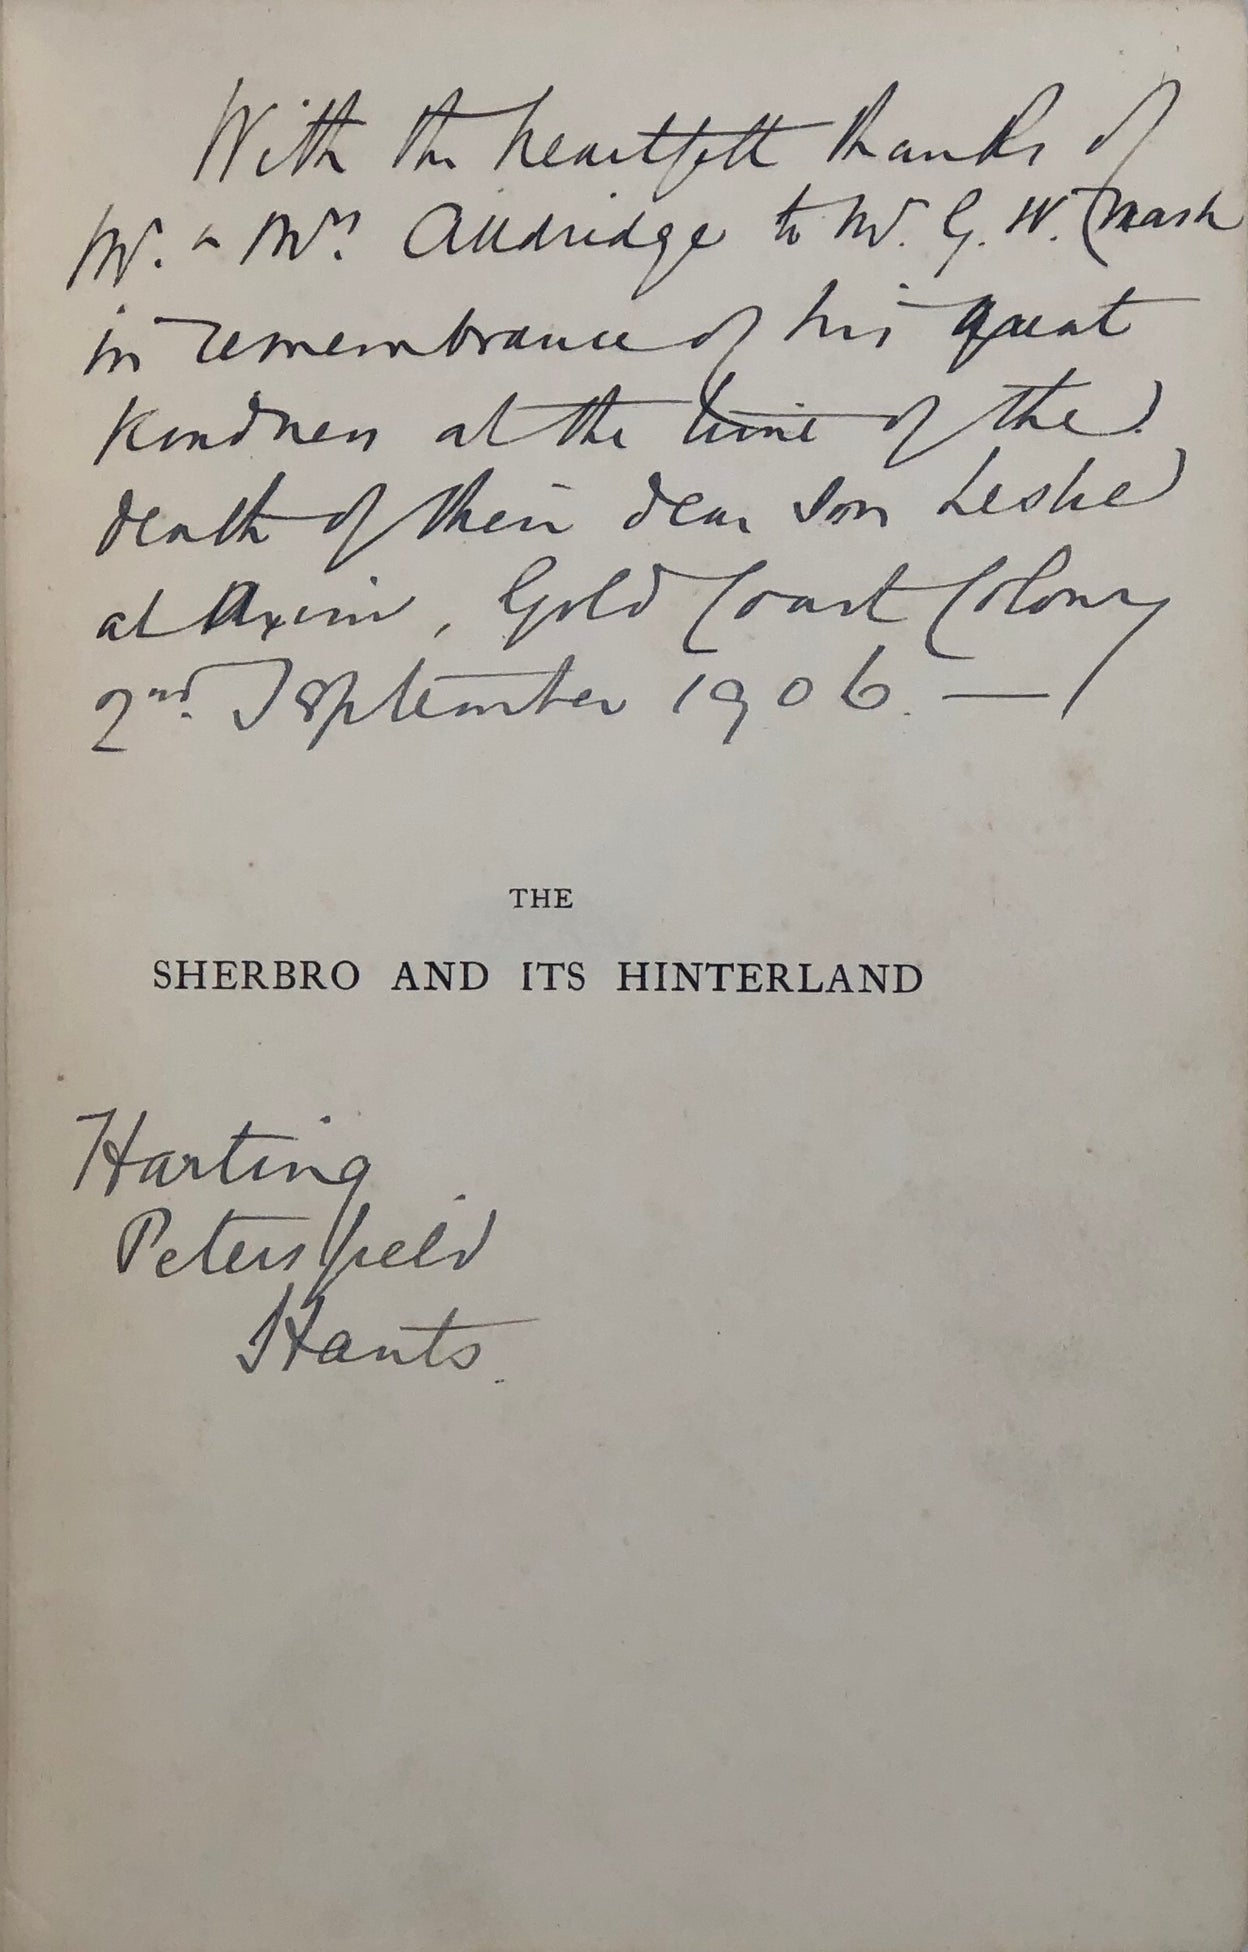 With the heartfelt thanks of
Mr. & Mrs. Alldridge to Mr. G. W.
in remembrance of his great
kindness at the time of the
death of their dear son Leslie
at Axim, Gold Coast Colony
2nd. September 1906. —
THE
SHERBRO AND ITS HINTERLAND
Harting
Petersfield
Hants.